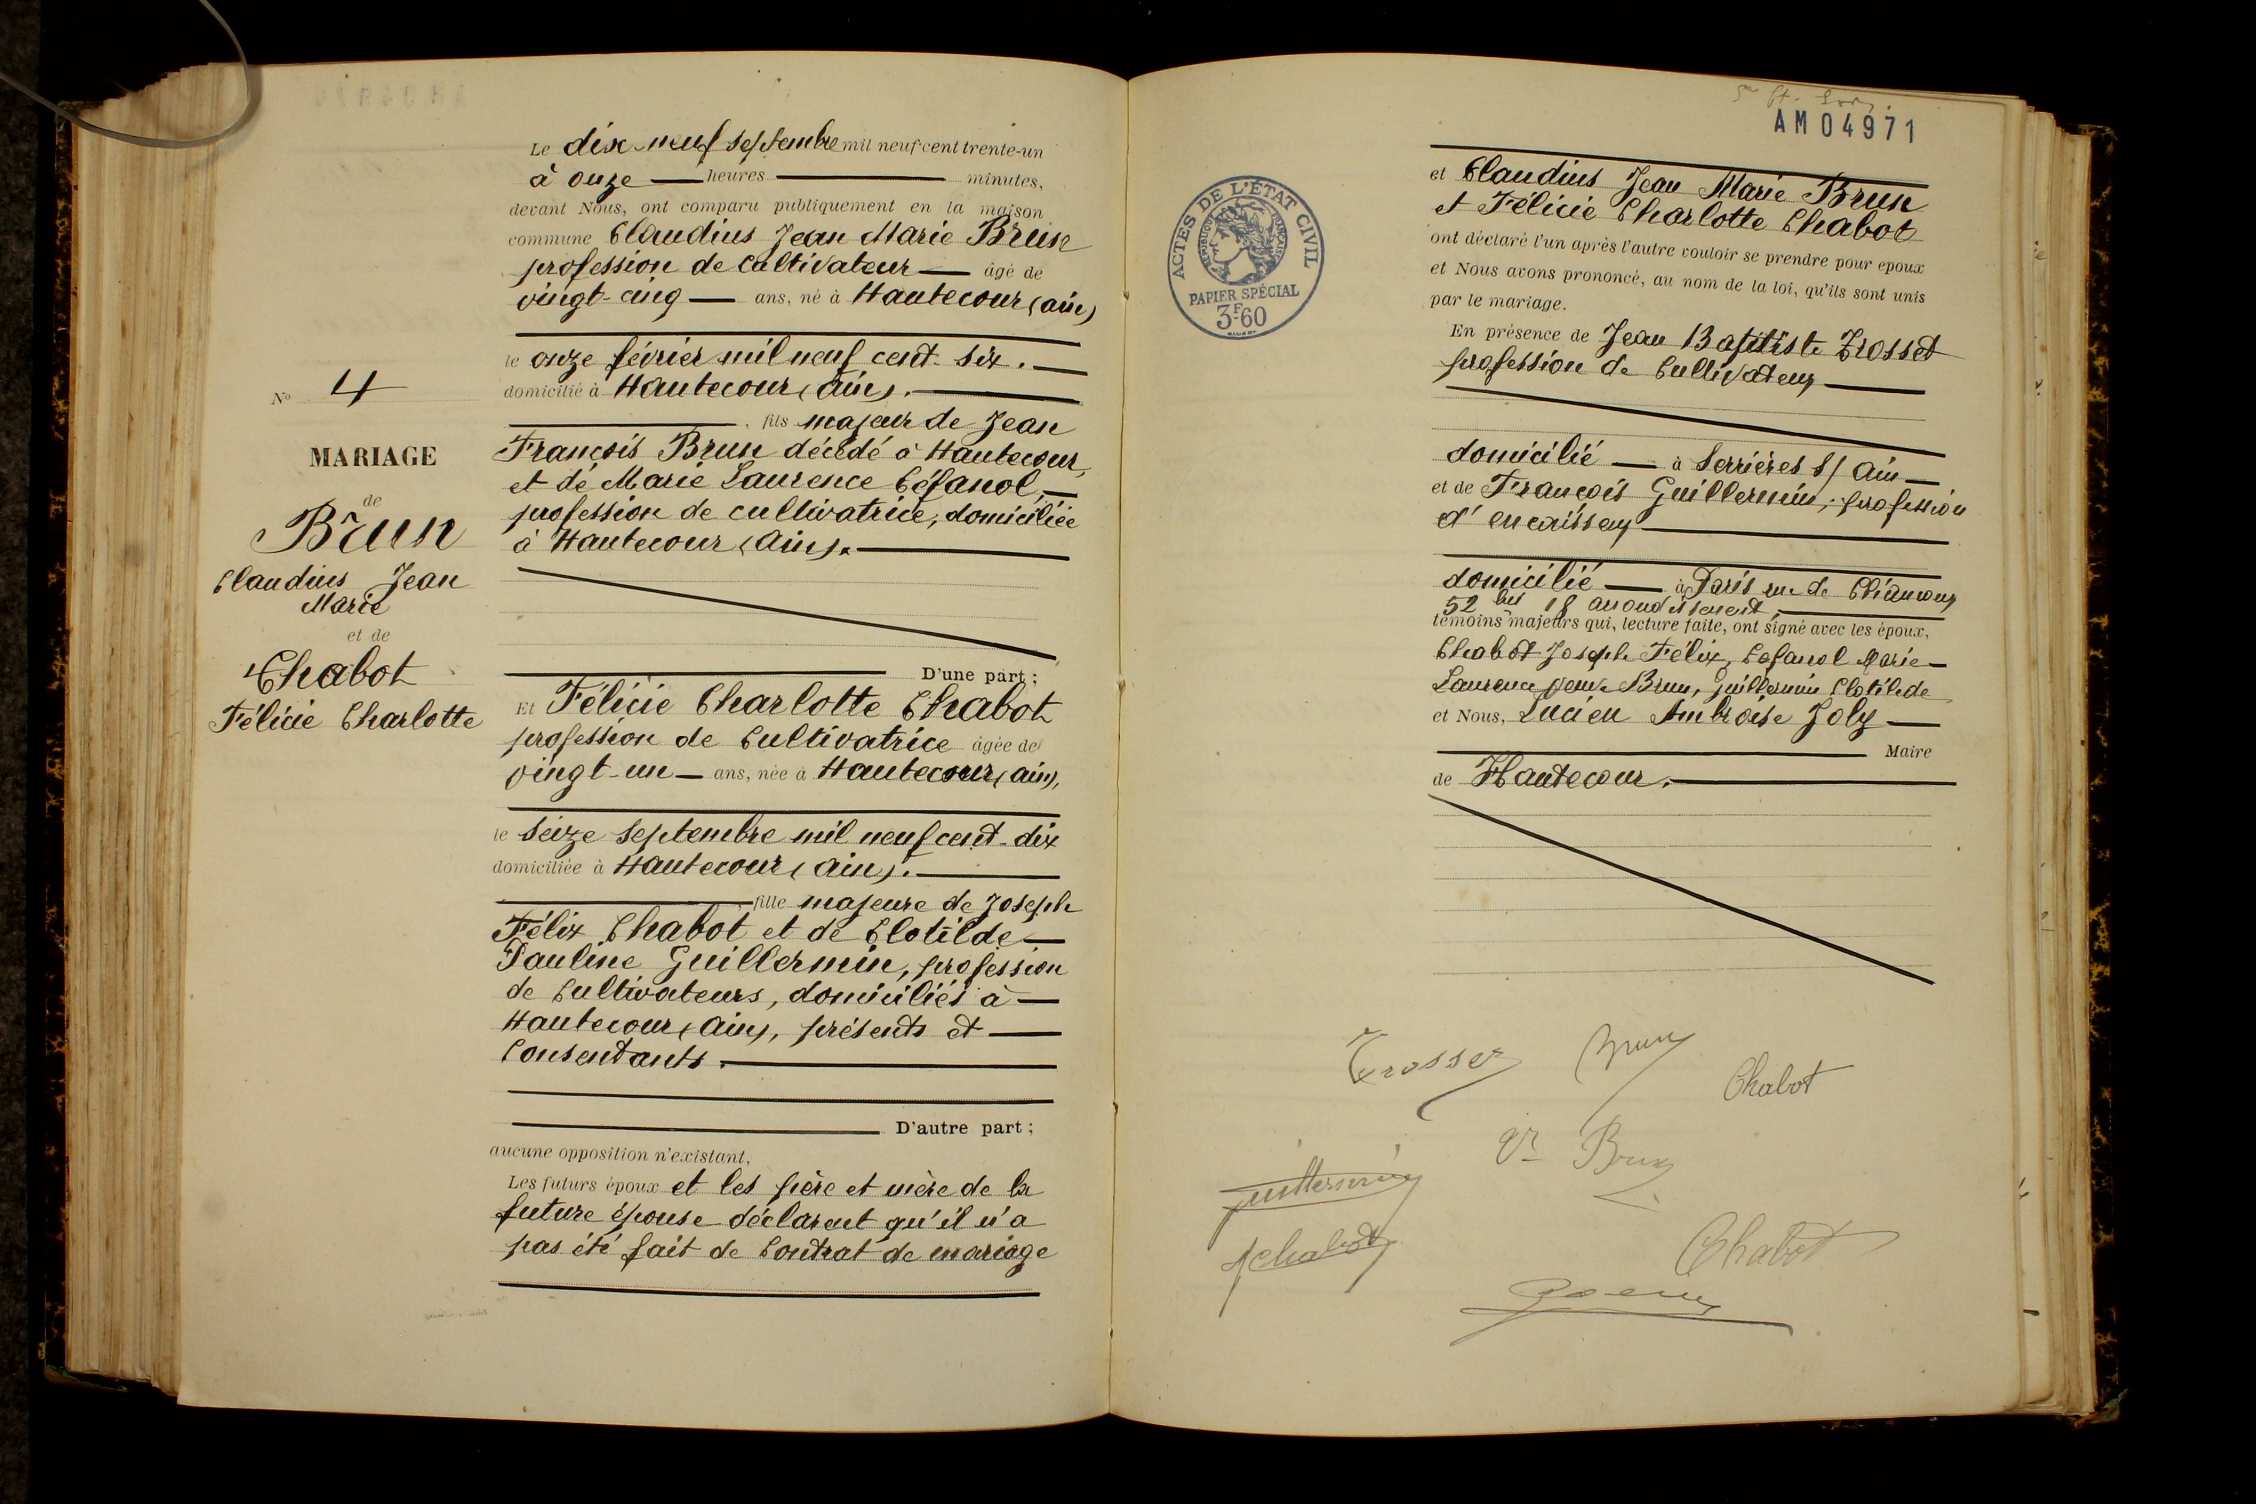 N° 4
MARIAGE
de
Brun
Claudius Jean
Marie
et de
Chabot
Félicie Charlotte
Le dix-neuf septembre mil neuf cent trente-un
à onze heures minutes,
devant Nous, ont comparu publiquement en la maison
commune Claudius Jean Marie Brun
profession de cultivateur âgé de
vingt-cinq ans, né à Hautecour (Ain)
le onze février mil neuf cent six.
domicilié à Hautecour (Ain).
fils majeur de Jean
François Brun décédé à Hautecour,
et de Marie Laurence Géfanol,
profession de cultivatrice, domiciliée
à Hautecour (Ain).
D'une part ;
Et Félicie Charlotte Chabot
profession de Cultivatrice âgée de
vingt-un ans, née à Hautecour (Ain),
le seize septembre mil neuf cent dix
domiciliée à Hautecour (Ain).
fille majeure de Joseph
Félix Chabot et de Clotilde
Pauline Guillermin, profession
de Cultivateurs, domiciliés à
Hautecour (Ain), présents et
Consentants.
D'autre part ;
aucune opposition n'existant,
Les futurs époux et les père et mère de la
future épouse déclarent qu'il n'a
pas été fait de Contrat de mariage
ACTES DE L'ÉTAT CIVIL
RÉPUBLIQUE FRANÇAISE
PAPIER SPÉCIAL
3F60
AM04971
et Claudius Jean Marie Brun
et Félicie Charlotte Chabot
ont déclaré l'un après l'autre vouloir se prendre pour époux
et Nous avons prononcé, au nom de la loi, qu'ils sont unis
par le mariage.
En présence de Jean Baptiste Trosset
profession de Cultivateur
domicilié à Serrières s/ Ain
et de François Guillermin, profession
d'encaisseur
domicilié à Paris rue de
52 bis 18 arrondissement,
témoins majeurs qui, lecture faite, ont signé avec les époux,
Chabot Joseph Félix, Marie
Laurence veuve Brun, Guillermin Clotilde
et Nous, Lucien Ambroise Joly
Maire
de Hautecour.
Trosset Brun
Chabot
Ve Brun
Guillermin
F Chabot
Chabot